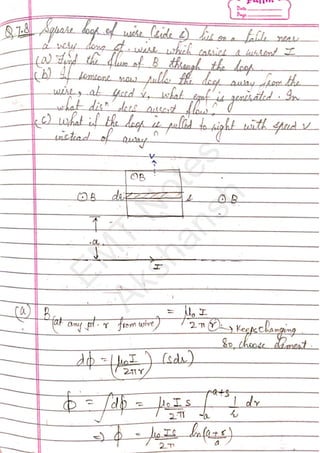 Date
Q 7.8 Square loop of wire (side s) lies on a table near
a very long st. wire which carries a current I.
(a) Find the flux of B through the loop
(b) If someone now pulls the loop away from the
wire, at speed v, what emf is generated. In
what dirn does current flow?
(c) What if the loop is pulled to right with speed v
instead of away?
v
⊙B
⊙B dr s ⊙B
a
I
EMT Notes
Akchansh
(a) B(at any pt. r from wire) = μ₀I / 2πr → keeps changing
So, choose element.
dφ = (μ₀I / 2πr) (sdr)
φ = ∫dφ = μ₀Is / 2π ∫ₐᵃ⁺ˢ 1/r dr
⇒ φ = μ₀Is / 2π ln(a+s / a)